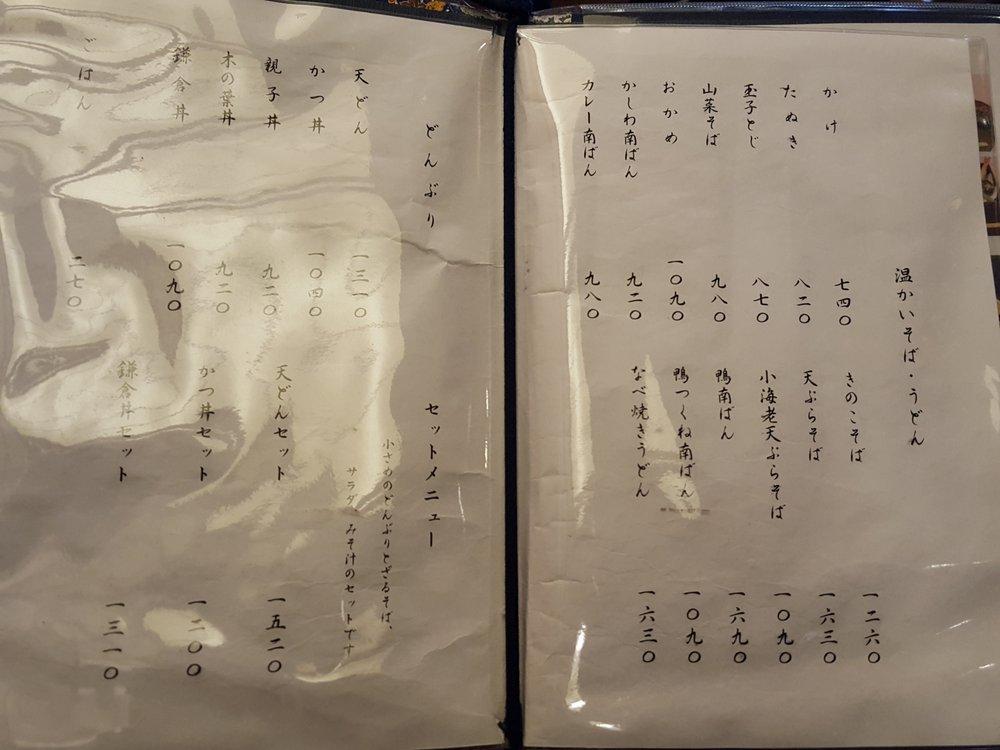 温かいそば・うどん
かけ 七四〇
たぬき 八二〇
玉子とじ 八七〇
山菜そば 九八〇
おかめ 一〇九〇
かしわ南ばん 九二〇
カレー南ばん 九八〇
きのこそば 一二六〇
天ぷらそば 一六三〇
小海老天ぷらそば 一〇九〇
鴨南ばん 一六九〇
鴨つくね南ばん 一〇九〇
なべ焼きうどん 一六三〇
どんぶり
天どん 一三一〇
かつ丼 一〇四〇
親子丼 九二〇
木の葉丼 九二〇
鎌倉丼 一〇九〇
ごはん 二七〇
セットメニュー
小さめのどんぶりとざるそば、
サラダ、みそ汁のセットです
天どんセット 一五二〇
かつ丼セット 一二〇〇
鎌倉丼セット 一三一〇